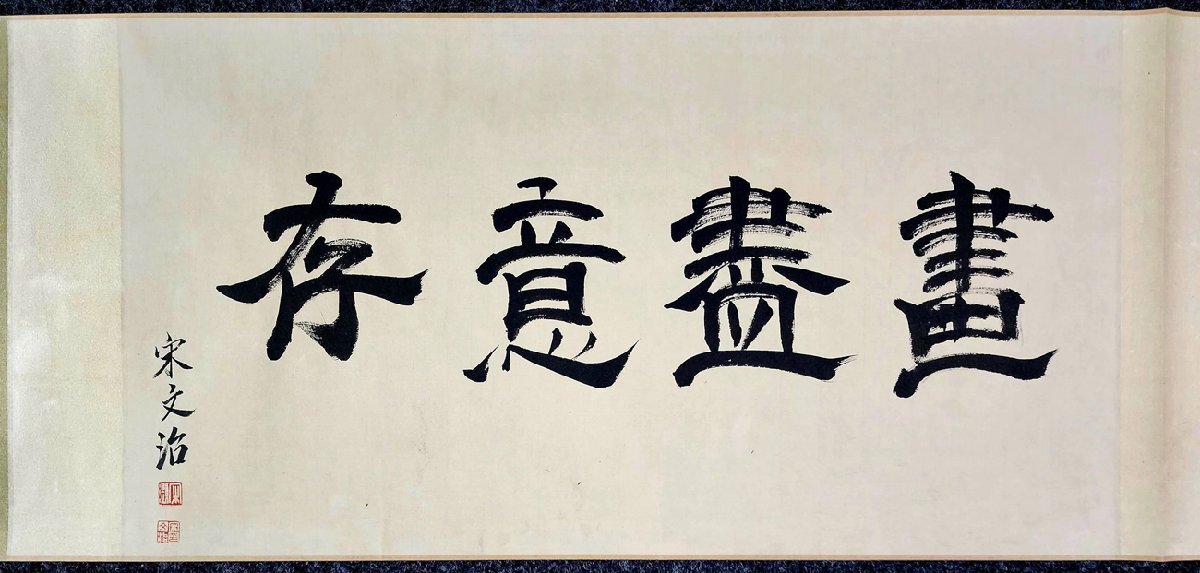 畫盡意存
宋文治